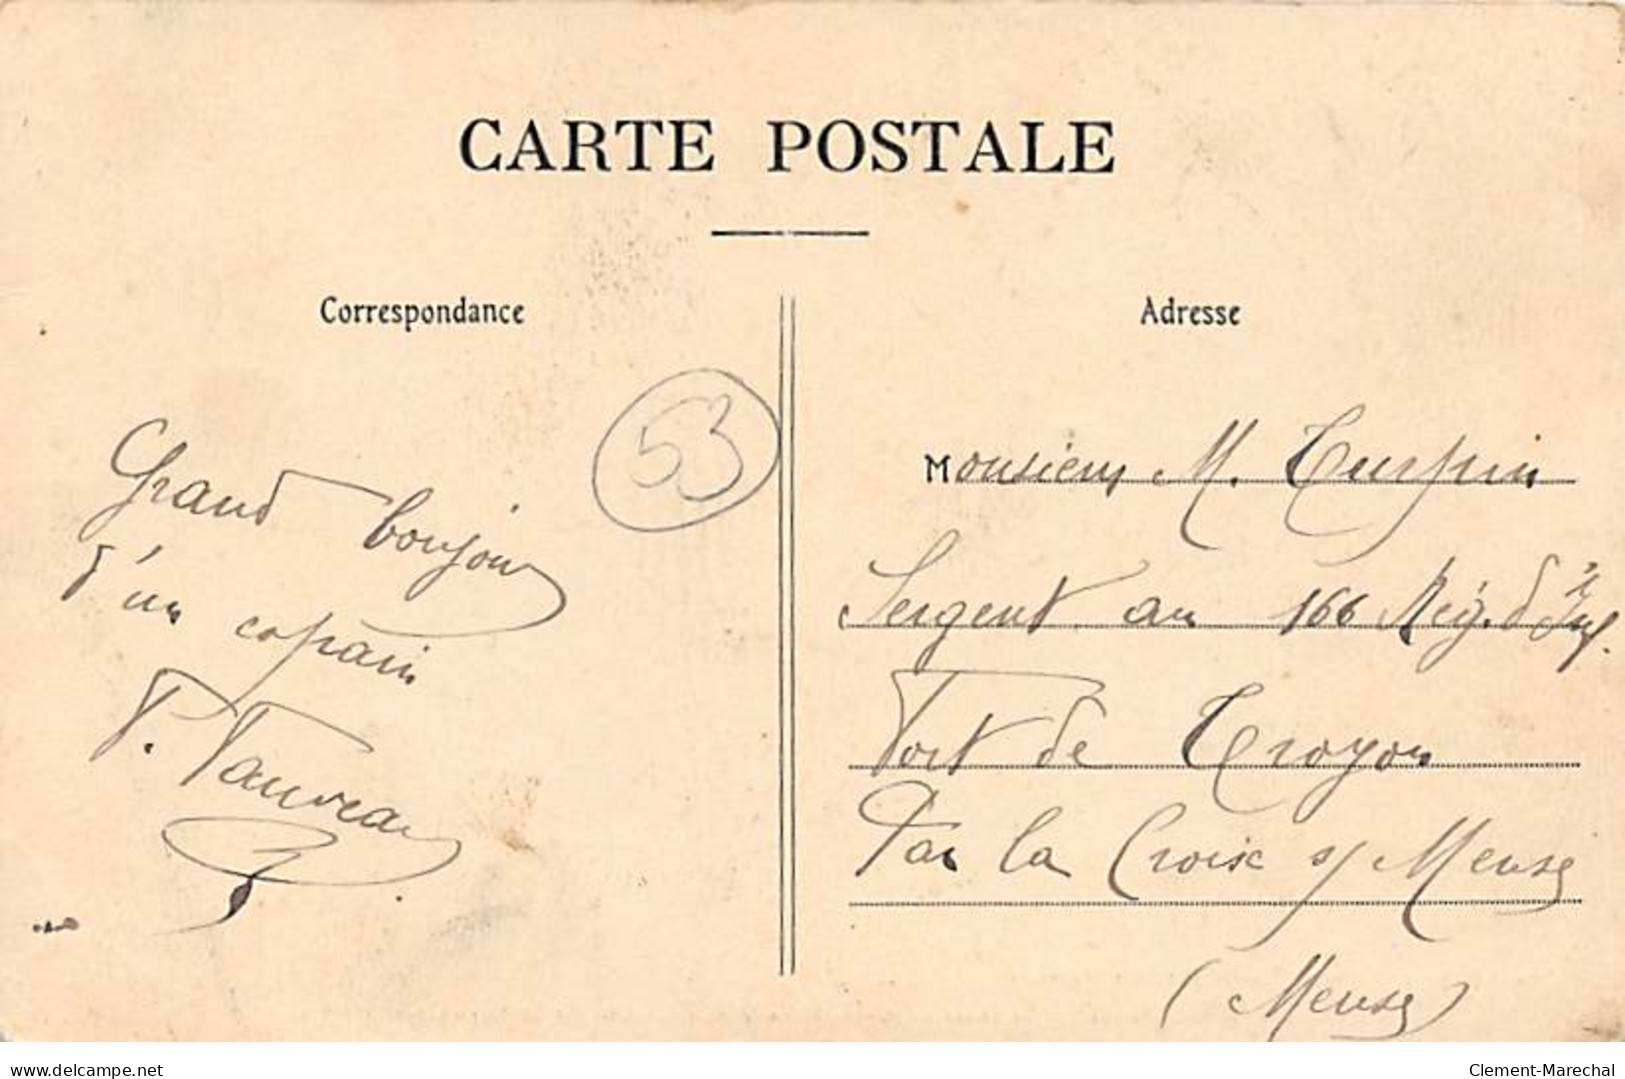 CARTE POSTALE
Correspondance
Adresse
53
Grand bonjour
d'un copain
Monsieur M. Turpin
Sergent au 166 Rég. d'Inf.
Fort de Troyon
Par la Croix s/ Meuse
(Meuse)
delcampe.net
Clement-Marechal